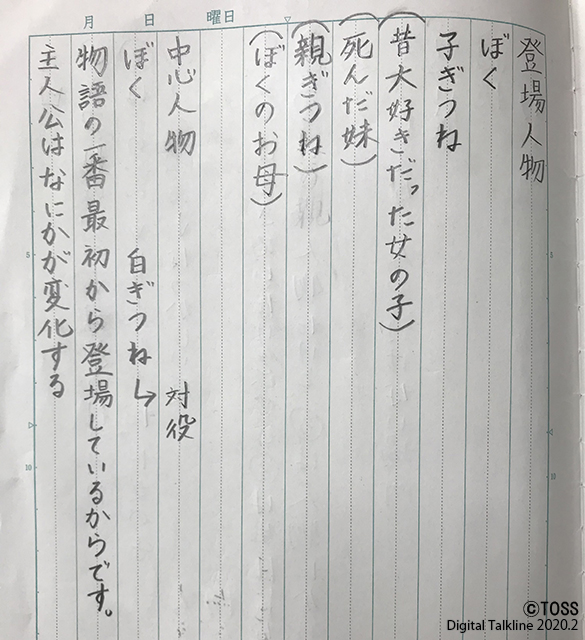 月 日 曜日
登場人物
ぼく
子ぎつね
(昔大好きだった女の子)
(死んだ妹)
(親ぎつね)
(ぼくのお母)
中心人物 対役
ぼく 白ぎつね↳
物語の一番最初から登場しているからです。
主人公はなにかが変化する
5
10
5
10
©TOSS
Digital Talkline 2020.2